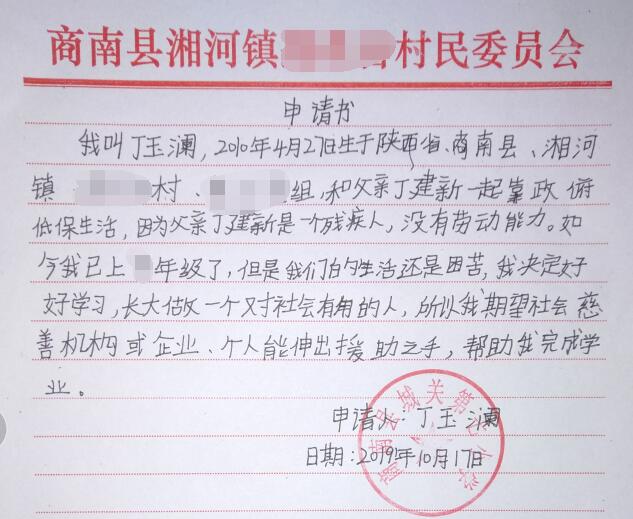 商南县湘河镇 村民委员会
申请书
我叫丁玉澜，2010年4月27日生于陕西省、商南县、湘河
镇 村、 组，和父亲丁建新一起靠政府
低保生活，因为父亲丁建新是一个残疾人，没有劳动能力。如
今我已上 年级了，但是我们的生活还是困苦，我决定好
好学习，长大做一个对社会有用的人，所以我期望社会慈
善机构或企业、个人能伸出援助之手，帮助我完成学
业。
申请人：丁玉澜
日期：2019年10月17日
商南县城关第 小学